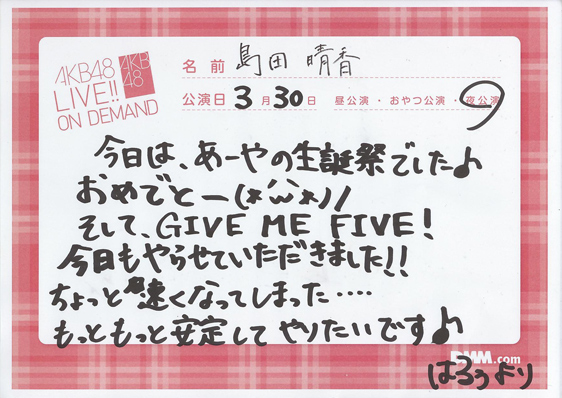 AKB48
LIVE!!
ON DEMAND
AKB
48
名前 島田 晴香
公演日 3月30日 昼公演・おやつ公演・夜公演
今日は、あーやの生誕祭でした♪
おめでとー(*´^`*)/
そして、GIVE ME FIVE!
今日もやらせていただきました!!
ちょっと速くなってしまった‥‥
もっともっと安定してやりたいです♪
DMM.com
はるぅより